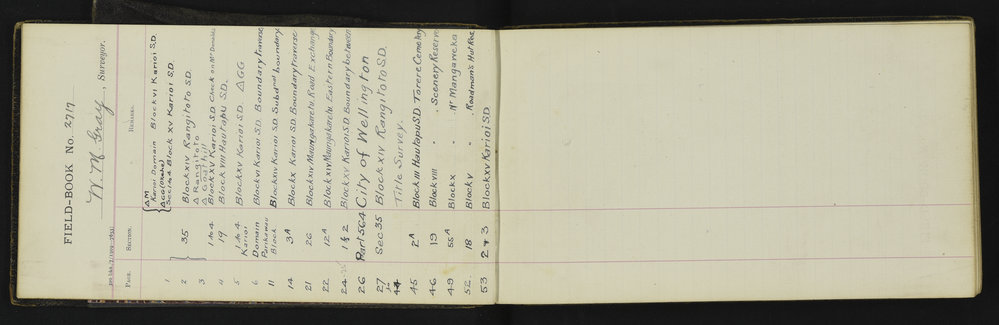 FIELD-BOOK No. 2717
W. M. Gray, Surveyor.
PAGE. SECTION. REMARKS.
△M
Karioi Domain Block VI Karioi S.D.
△GG (Okehu)
1 Sec 1 to 4 Block XV Karioi S.D.
2 35 Block XIV Rangitoto S.D.
△ Rangitoto
3 △ Goat hill
4 1 to 4 Block XV Karioi S.D. Check on Mr
19 Block VIII Hautapu S.D.
5 1 to 4 Block XV Karioi S.D. △GG
Karioi
6 Domain Block VI Karioi S.D. Boundary traverse
11 Block Block XIV Karioi S.D. Subdnal boundary
14 3A Block X Karioi S.D. Boundary traverse
21 26 Block XIV Maungakaretu Road Exchange
22 12A Block XIV Maungakaretu Eastern Boundary
24 1 & 2 Block XV Karioi S.D. Boundary between
26 Part 564 City of Wellington
27 Sec 35 Block XIV Rangitoto S.D.
44 Title Survey.
45 2A Block III Hautapu S.D. Torere Cemetery
46 19 Block VIII " Scenery Reserve
49 55A Block X " Nr Mangaweka
52 18 Block V " Roadman's Hut Res.
53 2 & 3 Block XV Karioi S.D.